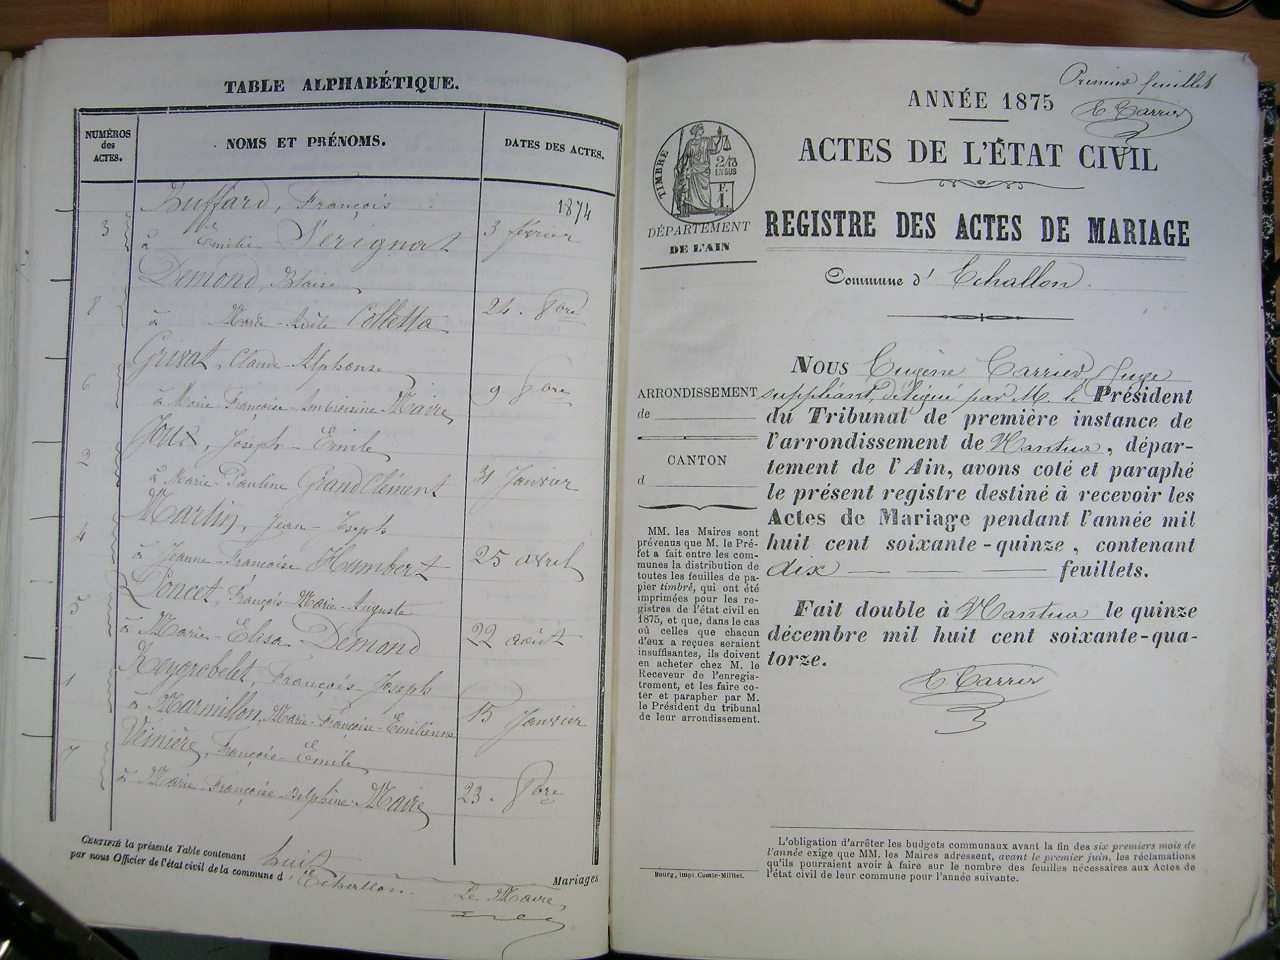 TABLE ALPHABÉTIQUE.
NUMÉROS
des
ACTES.
NOMS ET PRÉNOMS.
DATES DES ACTES.
1874
Huffard, François
3 à Emilie Sérignat 3 février
Demond, Blaise
8 à Marie- Colletta 24. 9bre
Grivat, Claude-Alphonse
6 à Marie-Françoise-Ambroisine Maire 9 9bre
Joux, Joseph-Emile
2 à Marie-Pauline GrandClément 31 Janvier
Martin, Jean-Joseph
4 à Jeanne-Françoise Humbert 25 avril
Poncet, François-Marie-Auguste
5 à Marie-Elisa Demond 22 août
Reygrobelet, François-Joseph
1 à Marmillon, Marie-Françoise-Emilienne 15 Janvier
François-Emile
7 à Marie-Françoise-Delphine Maire 23. 9bre
CERTIFIÉ la présente Table contenant huit Mariages
par nous Officier de l'état civil de la commune d'Echallon.
Le Maire,
Premier feuillet
E. Carrier
ANNÉE 1875
ACTES DE L'ÉTAT CIVIL
TIMBRE
2/10
EN SUS
F.
1.
DÉPARTEMENT
DE L'AIN
REGISTRE DES ACTES DE MARIAGE
Commune d'Echallon.
ARRONDISSEMENT
de
CANTON
d
MM. les Maires sont
prévenus que M. le Pré-
fet a fait entre les com-
munes la distribution de
toutes les feuilles de pa-
pier timbré, qui ont été
imprimées pour les re-
gistres de l'état civil en
1875, et que, dans le cas
où celles que chacun
d'eux a reçues seraient
insuffisantes, ils doivent
en acheter chez M. le
Receveur de l'enregis-
trement, et les faire co-
ter et parapher par M.
le Président du tribunal
de leur arrondissement.
Bourg, impr. Comte-Milliet.
NOUS Eugène Carrier Juge
suppléant, délégué par M. le Président
du Tribunal de première instance de
l'arrondissement de Nantua, dépar-
tement de l'Ain, avons coté et paraphé
le présent registre destiné à recevoir les
Actes de Mariage pendant l'année mil
huit cent soixante-quinze, contenant
dix feuillets.
Fait double à Nantua le quinze
décembre mil huit cent soixante-qua-
torze.
E. Carrier
L'obligation d'arrêter les budgets communaux avant la fin des six premiers mois de
l'année exige que MM. les Maires adressent, avant le premier juin, les réclamations
qu'ils pourraient avoir à faire sur le nombre des feuilles nécessaires aux Actes de
l'état civil de leur commune pour l'année suivante.